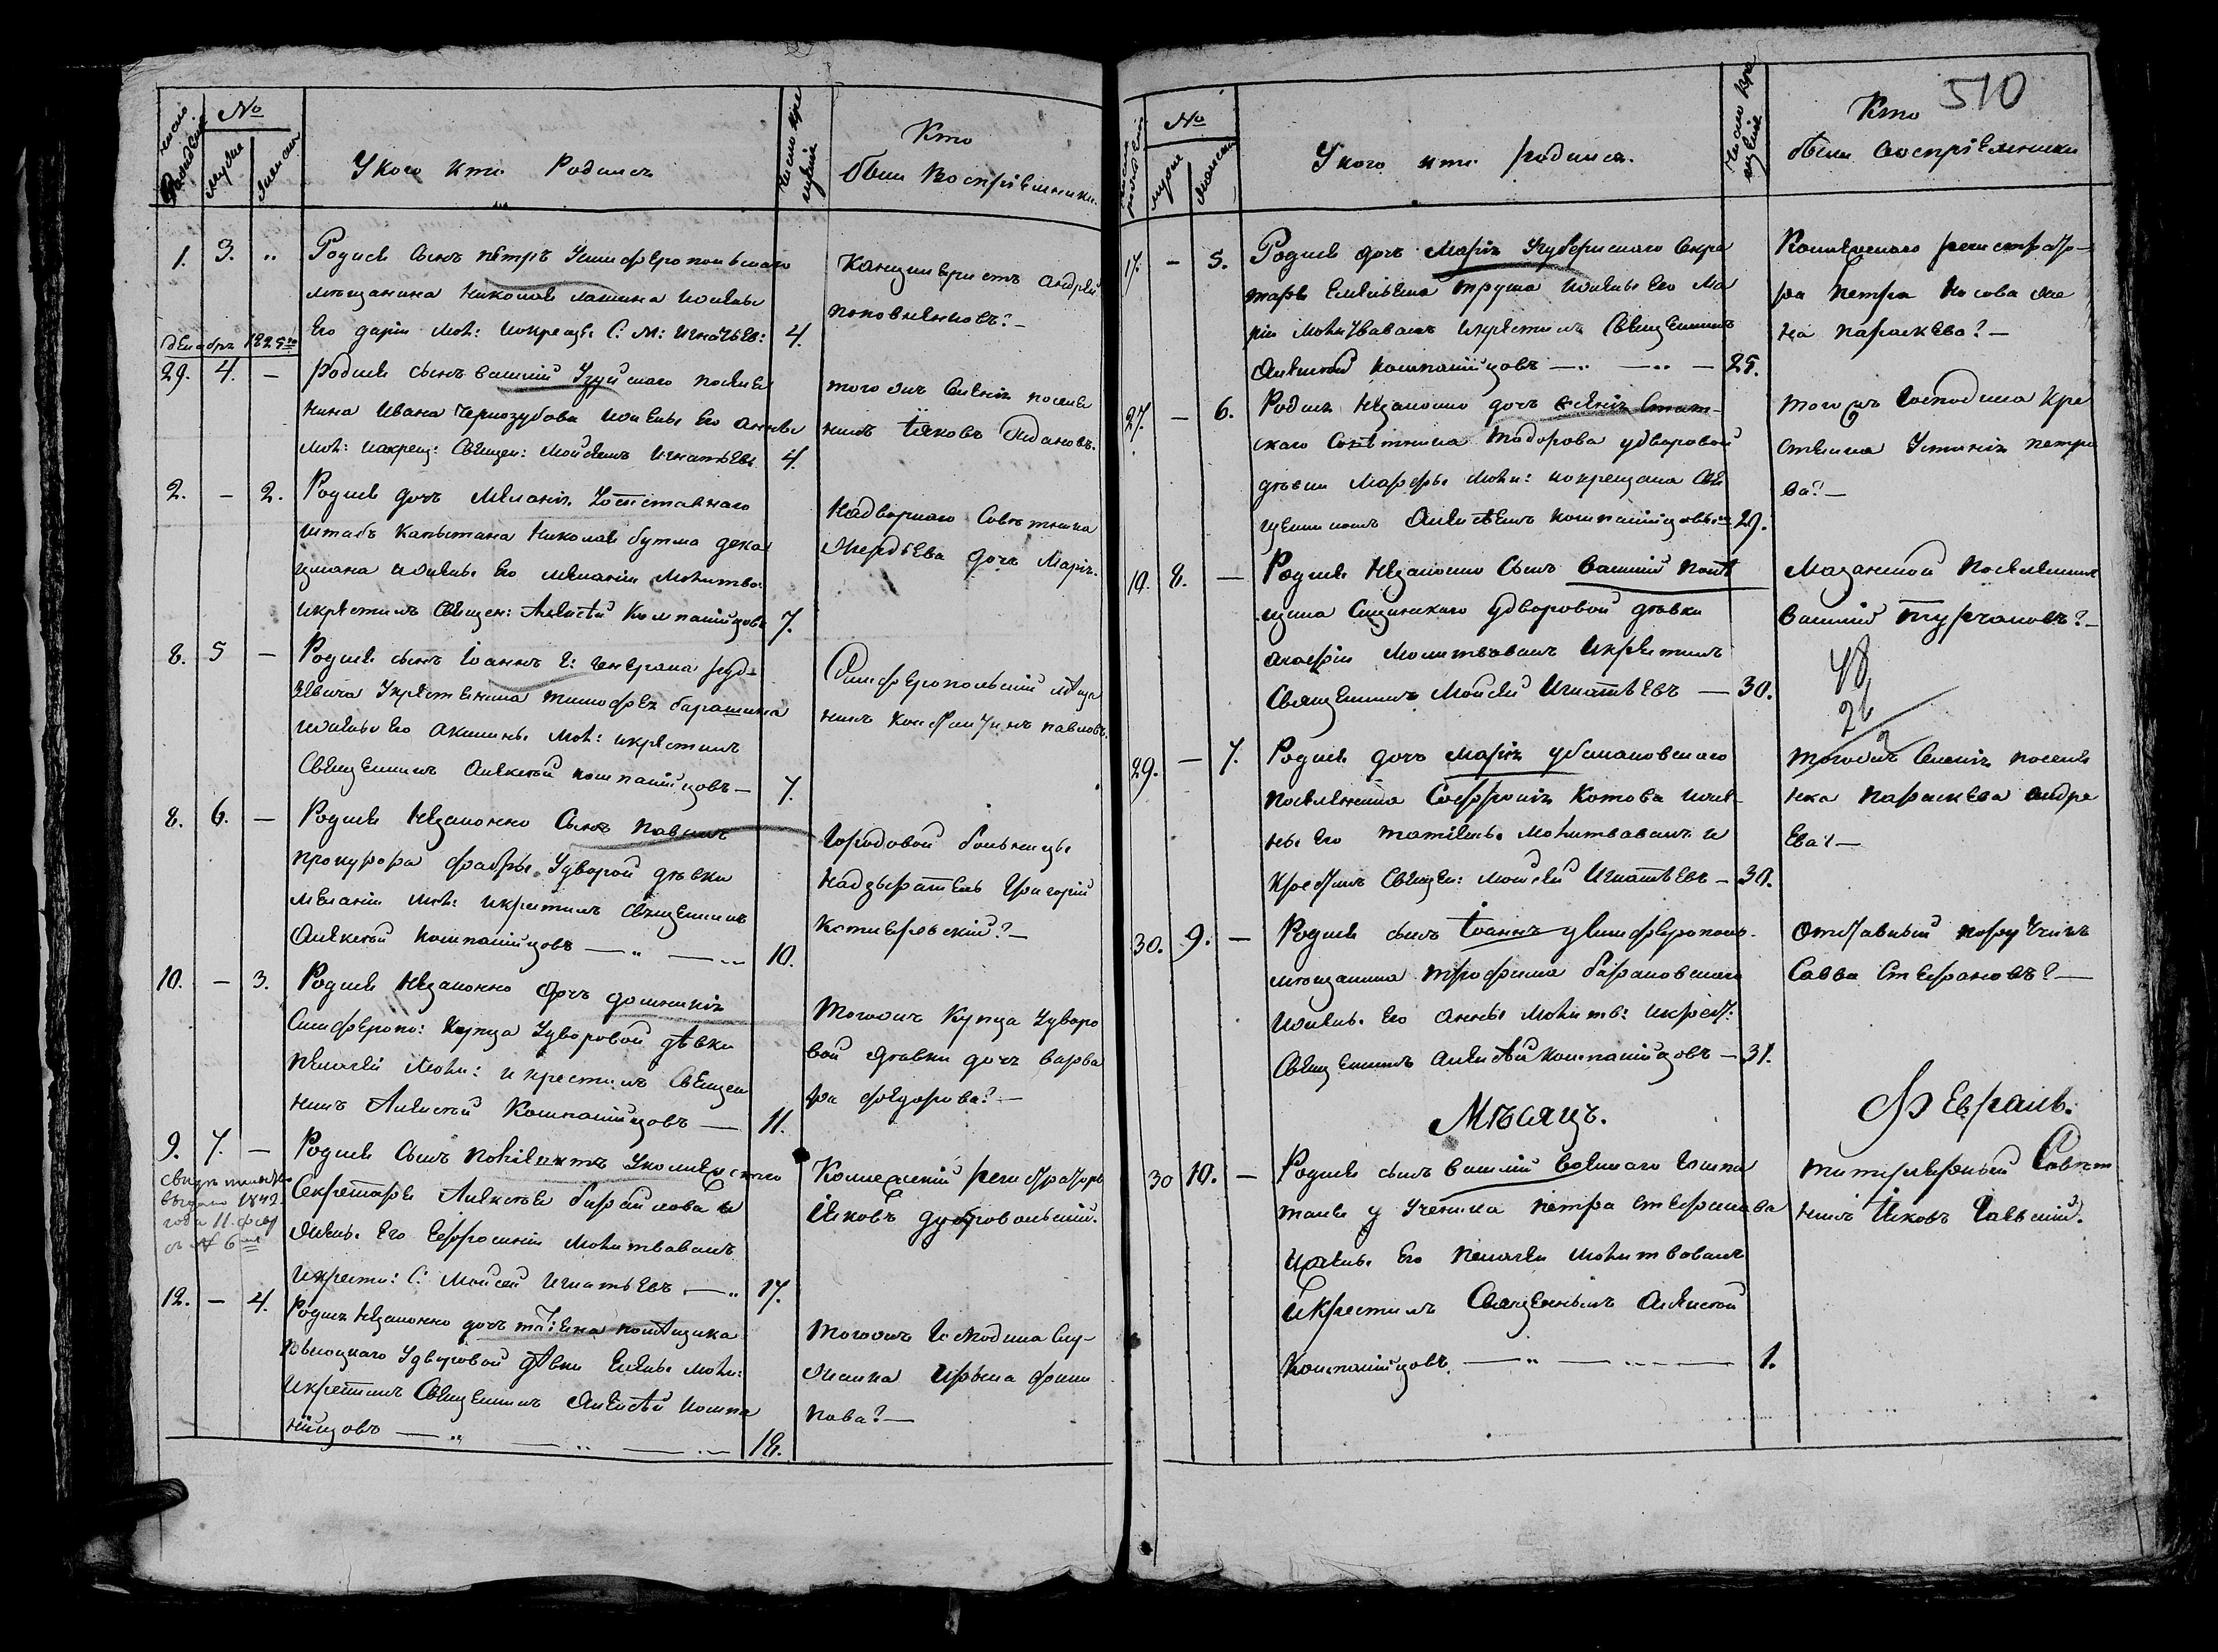 число рождения
№
мужие
женски
У кого кто Родился
число кре
щения
Кто
были восприемники
1. 3. Родися сынъ петръ Усимферопольскаго
мещанина Николая машина ижены
Его дарiи мол: икрещ: С: М: Игнатьев: 4.
Канцелеристъ андрей
поповниковъ?—
декабрь 1825го
29. 4. — Родися сынъ василий Узуйскаго поселя
нина Ивана Чернозубова ижены Его анны
мол: икрещ: Священ: Мойсеемъ Игнатьевъ 4.
тогожъ Селенiя поселя
нинъ Iяковъ
2. — 2. Родися дочь Меланiя Уотставнаго
штабъ Капытана Николая бутма дека
цмана ижены Его меланiи Молитво:
икрестилъ Священ: Алексѣй Компанiйцовъ 7.
Надворнаго Совѣтника
Мердѣева дочь Марiя.
8. 5 — Родися сынъ Iоаннъ Г: Генерала руд-
зевича Укрестянина тимофея барашина
ижены Его акилины мол: икрестилъ
Священникъ Алексѣй компанiйцовъ— 7.
Симферопольскiй мѣща
нинъ константинъ павловъ.
8. 6. — Родися Незаконно Сынъ Павелъ
прокурора фабры Удворой дѣвки
меланiи мол: икрестилъ священникъ
Алексѣй Компанiйцовъ — „ — 10.
Городовой больницы
Надзыратель Григорiй
10. — 3. Родися Незаконно дочь домникiя
Симферопо: Купца Удворовой дѣвки
пелагiи Моли: икрестилъ Священ
никъ Алексѣй Компанiйцовъ — 11.
тогожъ Купца Удворо
вой дѣвки дочь варва
ра федорова?—
9. 7. — Родися Сынъ Уколлежскаго
Секретаря Алексѣя барайлова и
жены Его Ефросинiи Молитвовалъ
икрести: С: Мойсей Игнатьевъ —„ 17.
свидетельство
выдано 1842
года 11. фев
съ № 6мъ
Коллежскiй регистраторъ
Iяковъ дубровольскiй.
12. — 4. Родися Незаконно дочь татiяна помѣщика
Удворовой дѣвки Елены моли:
Икрестилъ Священникъ Алексѣй компа
нiйцовъ —„ —„ — 18.
Тогожъ Господина слу-
жанка Ирына фили
пова?—
510
число рожденiя
№
мужие
женски
У кого кто родился.
число кре
щенiя
Кто
были восприемники
17. — 5. Родися дочь Марiя Угубернскаго Секре
таря Емельяна труша ижены Его Ма
рiи Молитвовалъ икрестилъ Священникъ
Алексѣй компанiйцовъ —„ —„ — 25.
Коллежскаго регистрато-
ра Петра Носова же
на параскева?—
27. — 6. Родися Незаконно дочь ксенiя Стат-
скаго Совѣтника тодорова удворовой
дѣвки Марфы моли: икрещена Свя
щенникомъ Алексѣемъ компанiйцовы: 29.
тогожъ Господина кре
стянина Устинiя петро
ва?—
10. 8. — Родися Незаконно Сынъ василiй помѣ
щика Удворовой дѣвки
агафiи Молитвовалъ Икрестилъ
Священникъ Мойсей Игнатьевъ — 30.
Мазанской поселянинъ
василий Турчановъ?—
48
26
29. — 7. Родися дочь марiя убешановскаго
поселянина Софронiя Котова ижe-
ны Его татiяны Молитвовалъ и
Крестилъ Священ: мойсей Игнатьевъ — 30.
тогожъ Селенiя поселя
нка параскева андре
ева?—
30. 9. — Родися сынъ Iоаннъ усимферополь.
мещанина трофима барановскаго
ижены Его анны Молитв: икрест:
Священникъ алексѣй компанiйцовъ — 31.
Отставный поручикъ
Савва Стефановъ?—
Мѣсяцъ.
Февраль.
30 10. — Родися сынъ василiй Военнаго Госпи
таля у Ученика петра стефанова
ижены Его пелагеи Молитвовалъ
икрестилъ Священникъ Алексѣй
Компанiйцовъ. —„ — 1.
титулярный Совѣт
никъ Iяковъ Гаевскiй.